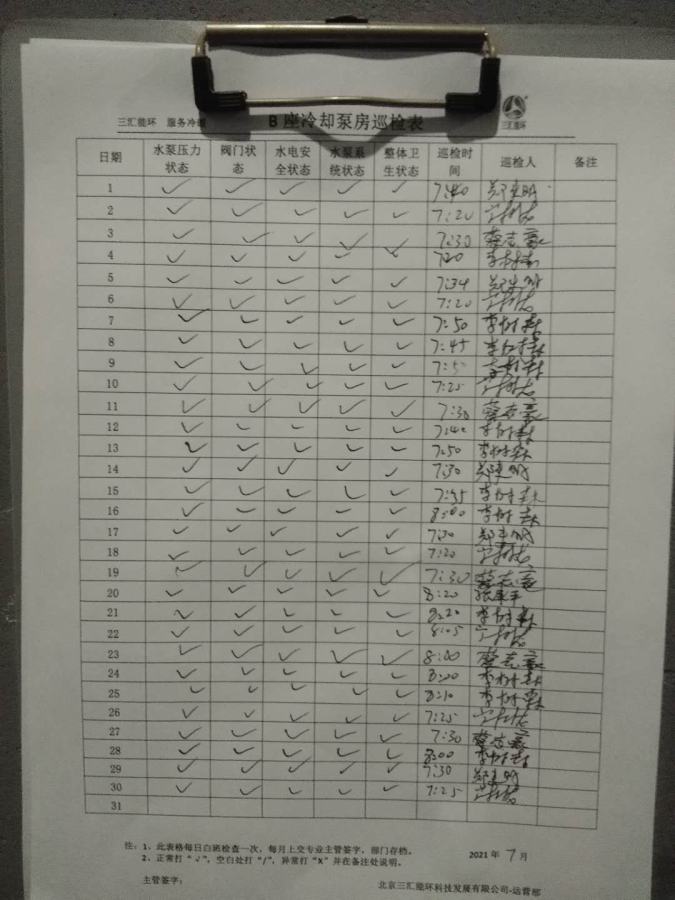 三汇能环 服务冷暖
三汇能环
B座冷却泵房巡检表
日期 水泵压力状态 阀门状态 水电安全状态 水泵系统状态 整体卫生状态 巡检时间 巡检人 备注
1 ✓ ✓ ✓ ✓ ✓ 7:40
2 ✓ ✓ ✓ ✓ ✓ 7:20
3 ✓ ✓ ✓ ✓ ✓ 7:30 蔡志豪
4 ✓ ✓ ✓ ✓ ✓ 7:20
5 ✓ ✓ ✓ ✓ ✓ 7:34
6 ✓ ✓ ✓ ✓ ✓ 7:20
7 ✓ ✓ ✓ ✓ ✓ 7:50 李树森
8 ✓ ✓ ✓ ✓ ✓ 7:45 李树森
9 ✓ ✓ ✓ ✓ ✓ 李树森
10 ✓ ✓ ✓ ✓ ✓ 7:25
11 ✓ ✓ ✓ ✓ ✓ 7:30 蔡志豪
12 ✓ ✓ ✓ ✓ ✓ 7:40 李树森
13 ✓ ✓ ✓ ✓ ✓ 7:50 李树森
14 ✓ ✓ ✓ ✓ ✓ 7:30
15 ✓ ✓ ✓ ✓ ✓ 7:55 李树森
16 ✓ ✓ ✓ ✓ ✓ 8:00 李树森
17 ✓ ✓ ✓ ✓ ✓ 7:30
18 ✓ ✓ ✓ ✓ ✓ 7:20
19 ✓ ✓ ✓ ✓ ✓ 7:30 蔡志豪
20 ✓ ✓ ✓ ✓ ✓ 8:20
21 ✓ ✓ ✓ ✓ ✓ 8:20 李树森
22 ✓ ✓ ✓ ✓ ✓ 8:05
23 ✓ ✓ ✓ ✓ ✓ 8:00 蔡志豪
24 ✓ ✓ ✓ ✓ ✓ 8:00 李树森
25 ✓ ✓ ✓ ✓ ✓ 8:10 李树森
26 ✓ ✓ ✓ ✓ ✓ 7:25
27 ✓ ✓ ✓ ✓ ✓ 7:30 蔡志豪
28 ✓ ✓ ✓ ✓ ✓ 8:00 李树森
29 ✓ ✓ ✓ ✓ ✓ 7:30
30 ✓ ✓ ✓ ✓ ✓ 7:25
31
注：1、此表格每日白班检查一次，每月上交专业主管签字，部门存档。
2、正常打“√”，空白处打“/”，异常打“X”并在备注处说明。
2021年 7月
主管签字：
北京三汇能环科技发展有限公司-运营部